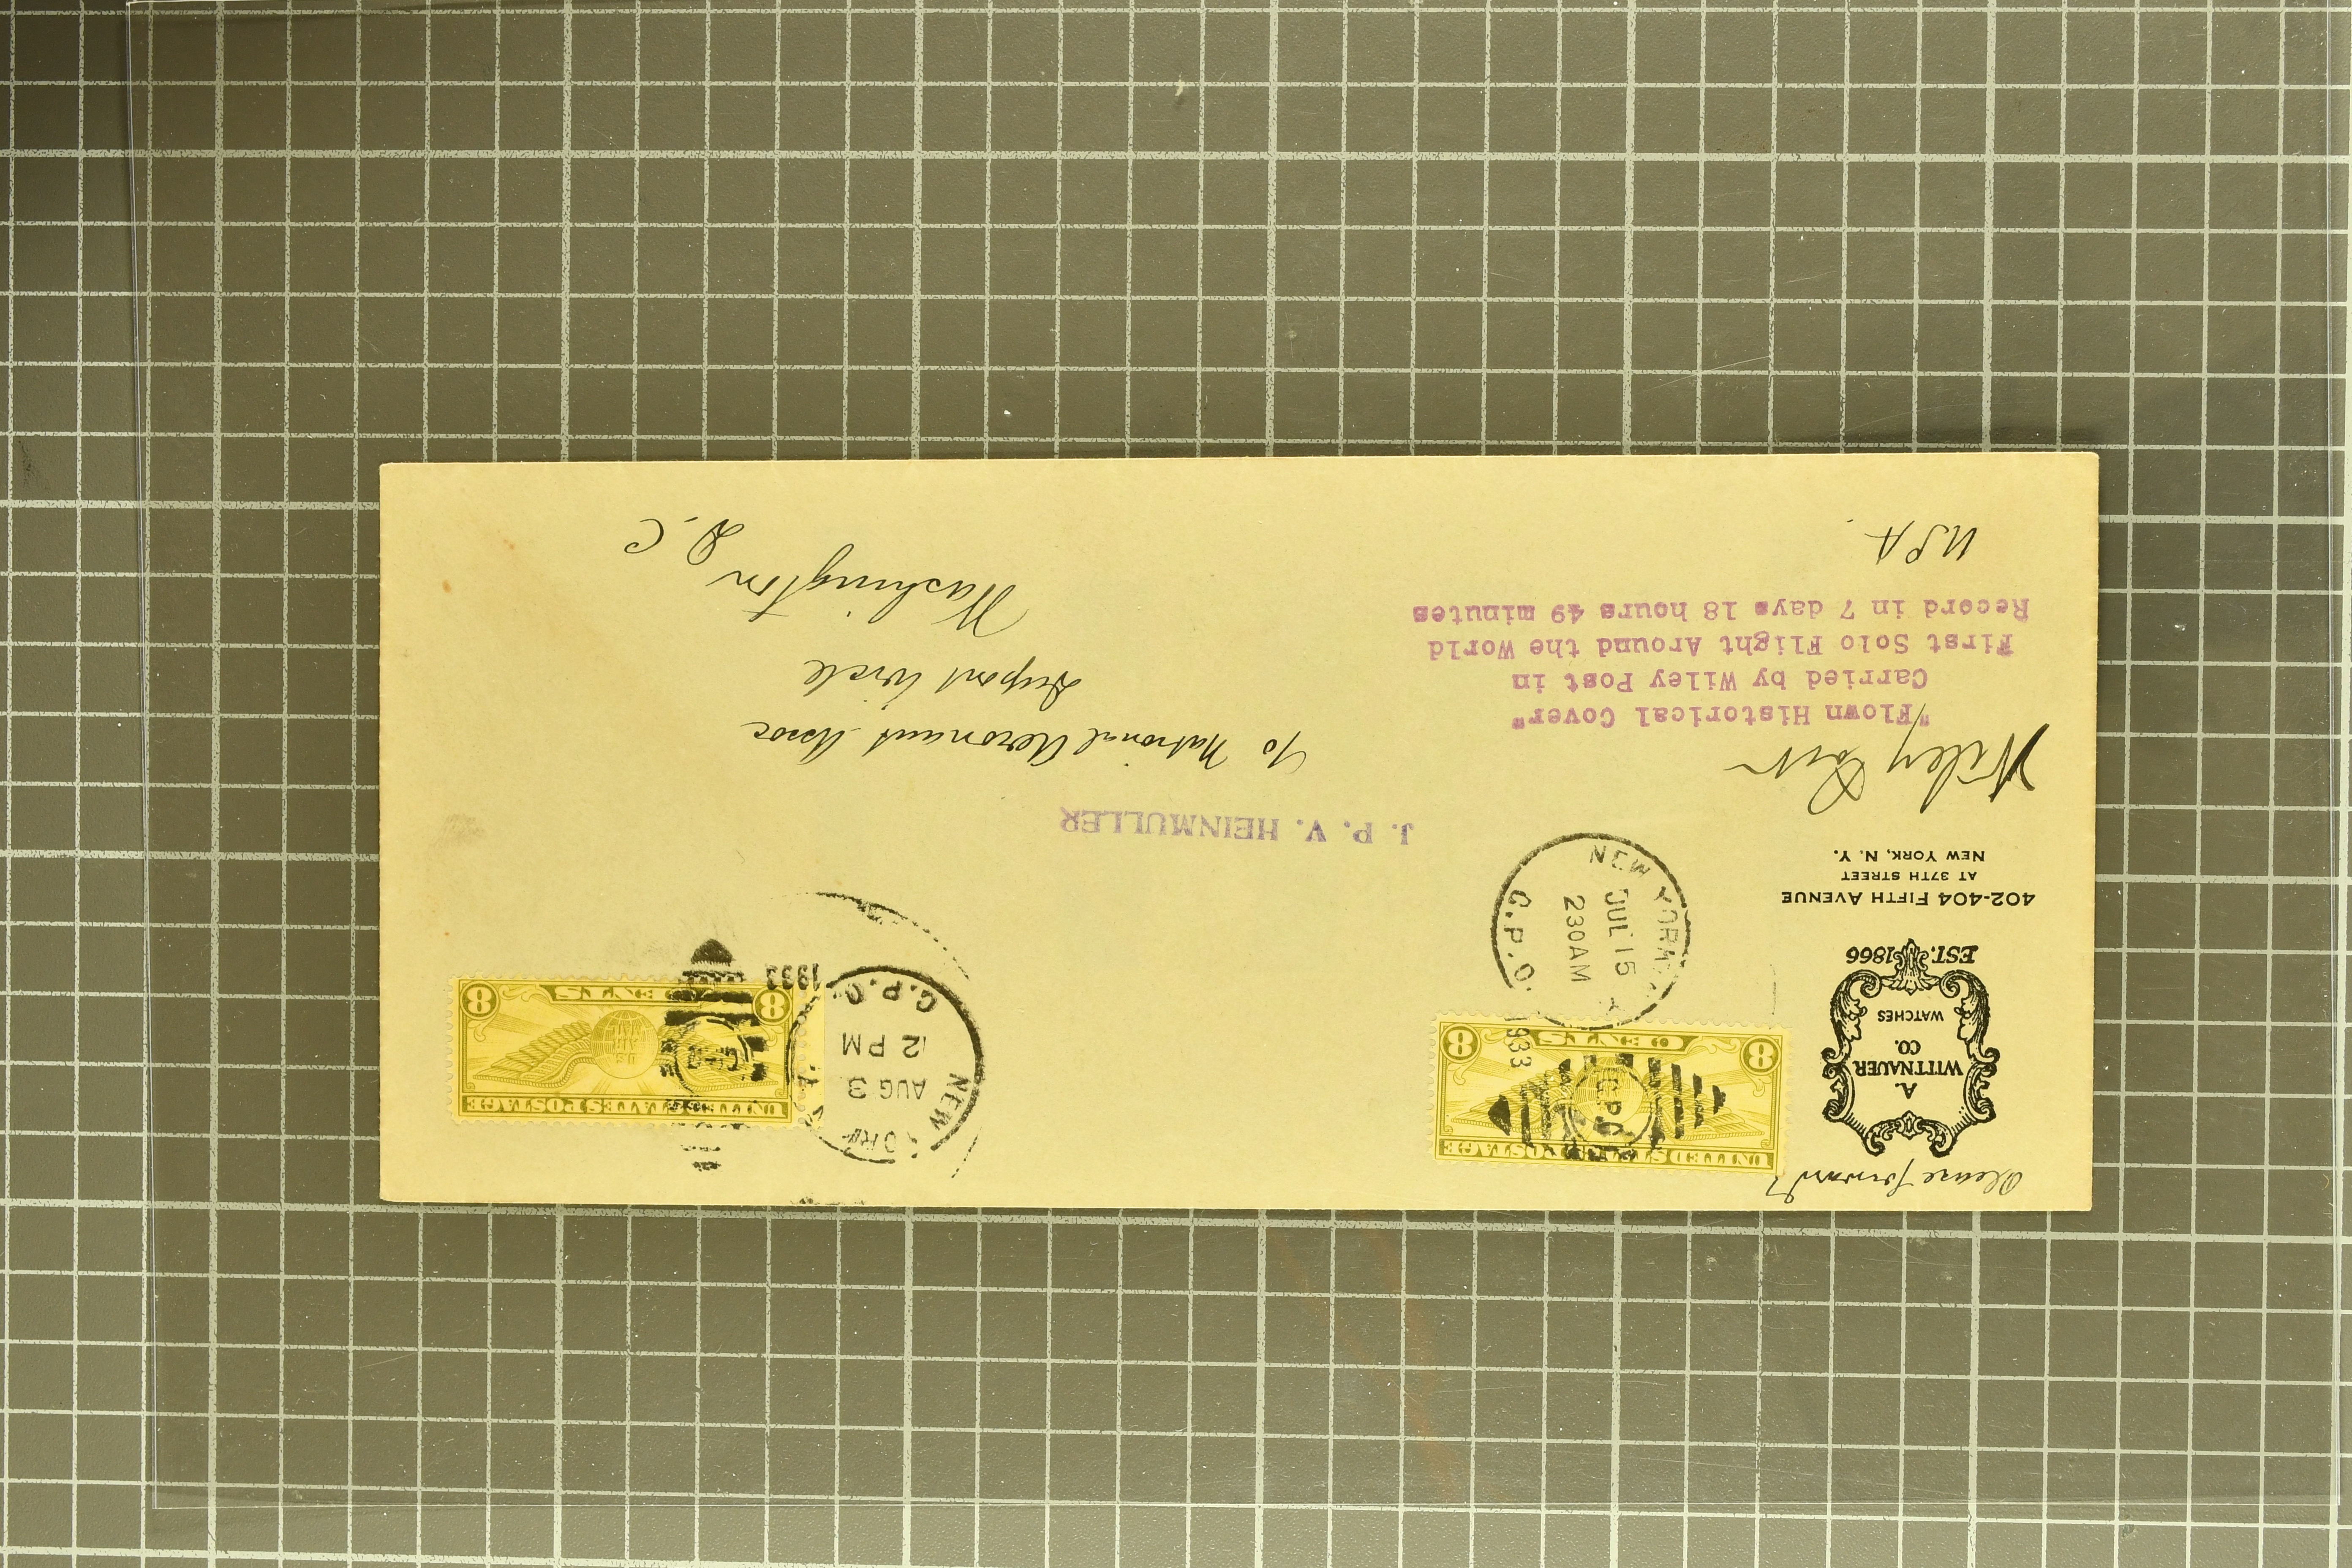 Please forward
A.
WITTNAUER
CO.
WATCHES
EST. 1866
402-404 FIFTH AVENUE
AT 37TH STREET
NEW YORK, N. Y.
UNITED STATES POSTAGE
8 CENTS 8
G.P.O.
NEW YORK, N.Y.
JUL 15
230AM
1933
G.P.O.
UNITED STATES POSTAGE
U.S.
AIR
MAIL
8 CENTS 8
NEW YORK
AUG 3
12 PM
1933
G.P.O.
J. P. V. HEINMULLER
Wiley Post
"Flown Historical Cover"
Carried by Wiley Post in
First Solo Flight Around the World
Record in 7 days 18 hours 49 minutes
USA.
To National Aeronaut Assoc
Dupont Circle
Washington
D.C